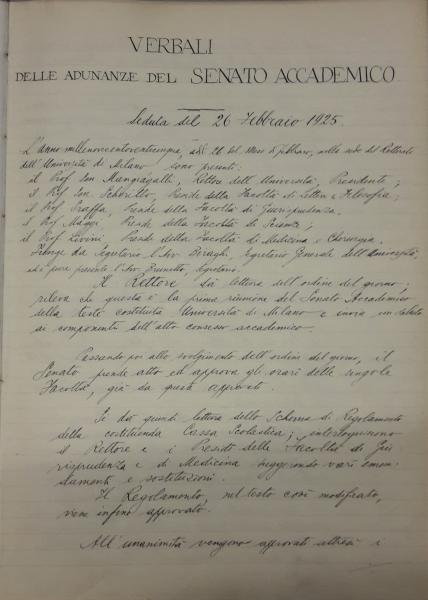 VERBALI
DELLE ADUNANZE DEL SENATO ACCADEMICO
Seduta del 26 Febbraio 1925.
L'anno millenovecentoventicinque, addì 26 del mese di febbraio, nella sede del Rettorato
dell'Università di Milano sono presenti:
il Prof. Sen. Mangiagalli, Rettore dell'Università, Presidente;
il Prof. Sen. Scherillo, Preside della Facoltà di Lettere e Filosofia,
il Prof. Sraffa, Preside della Facoltà di Giurisprudenza,
il Prof. Maggi, Preside della Facoltà di Scienze;
il Prof. Livini, Preside della Facoltà di Medicina e Chirurgia.
Funge da Segretario l'Avv. Segretario Generale dell'Università;
è pure presente l'Avv. Brunetto,
Il Rettore dà lettura dell'ordine del giorno;
rileva che questa è la prima riunione del Senato Accademico
della testé costituita Università di Milano e invia un saluto
ai componenti dell'alto consesso accademico.
Passando poi allo svolgimento dell'ordine del giorno, il
Senato prende atto ed approva gli orari delle singole
Facoltà, già da queste approvati.
Si dà quindi lettura dello Schema di Regolamento
della costituenda Cassa Scolastica; interloquiscono
il Rettore e i Presidi delle Facoltà di Giu
risprudenza e di Medicina suggerendo varî emen-
damenti e sostituzioni.
Il Regolamento, nel testo così modificato,
viene infine approvato.
All'unanimità vengono approvati altresì i